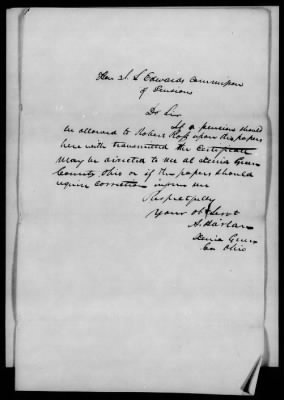 Hon J. L Edwards Commissioner
of Pensions
Dr Sir
If a pension should
be allowed to Robert Hoff upon the papers
here with transmitted the Certificate
may be directed to me at Xenia Green
County Ohio or if the papers should
require correction inform me
Respectfully
Your Obt Servt
A. Harlan
Xenia Green
Co Ohio